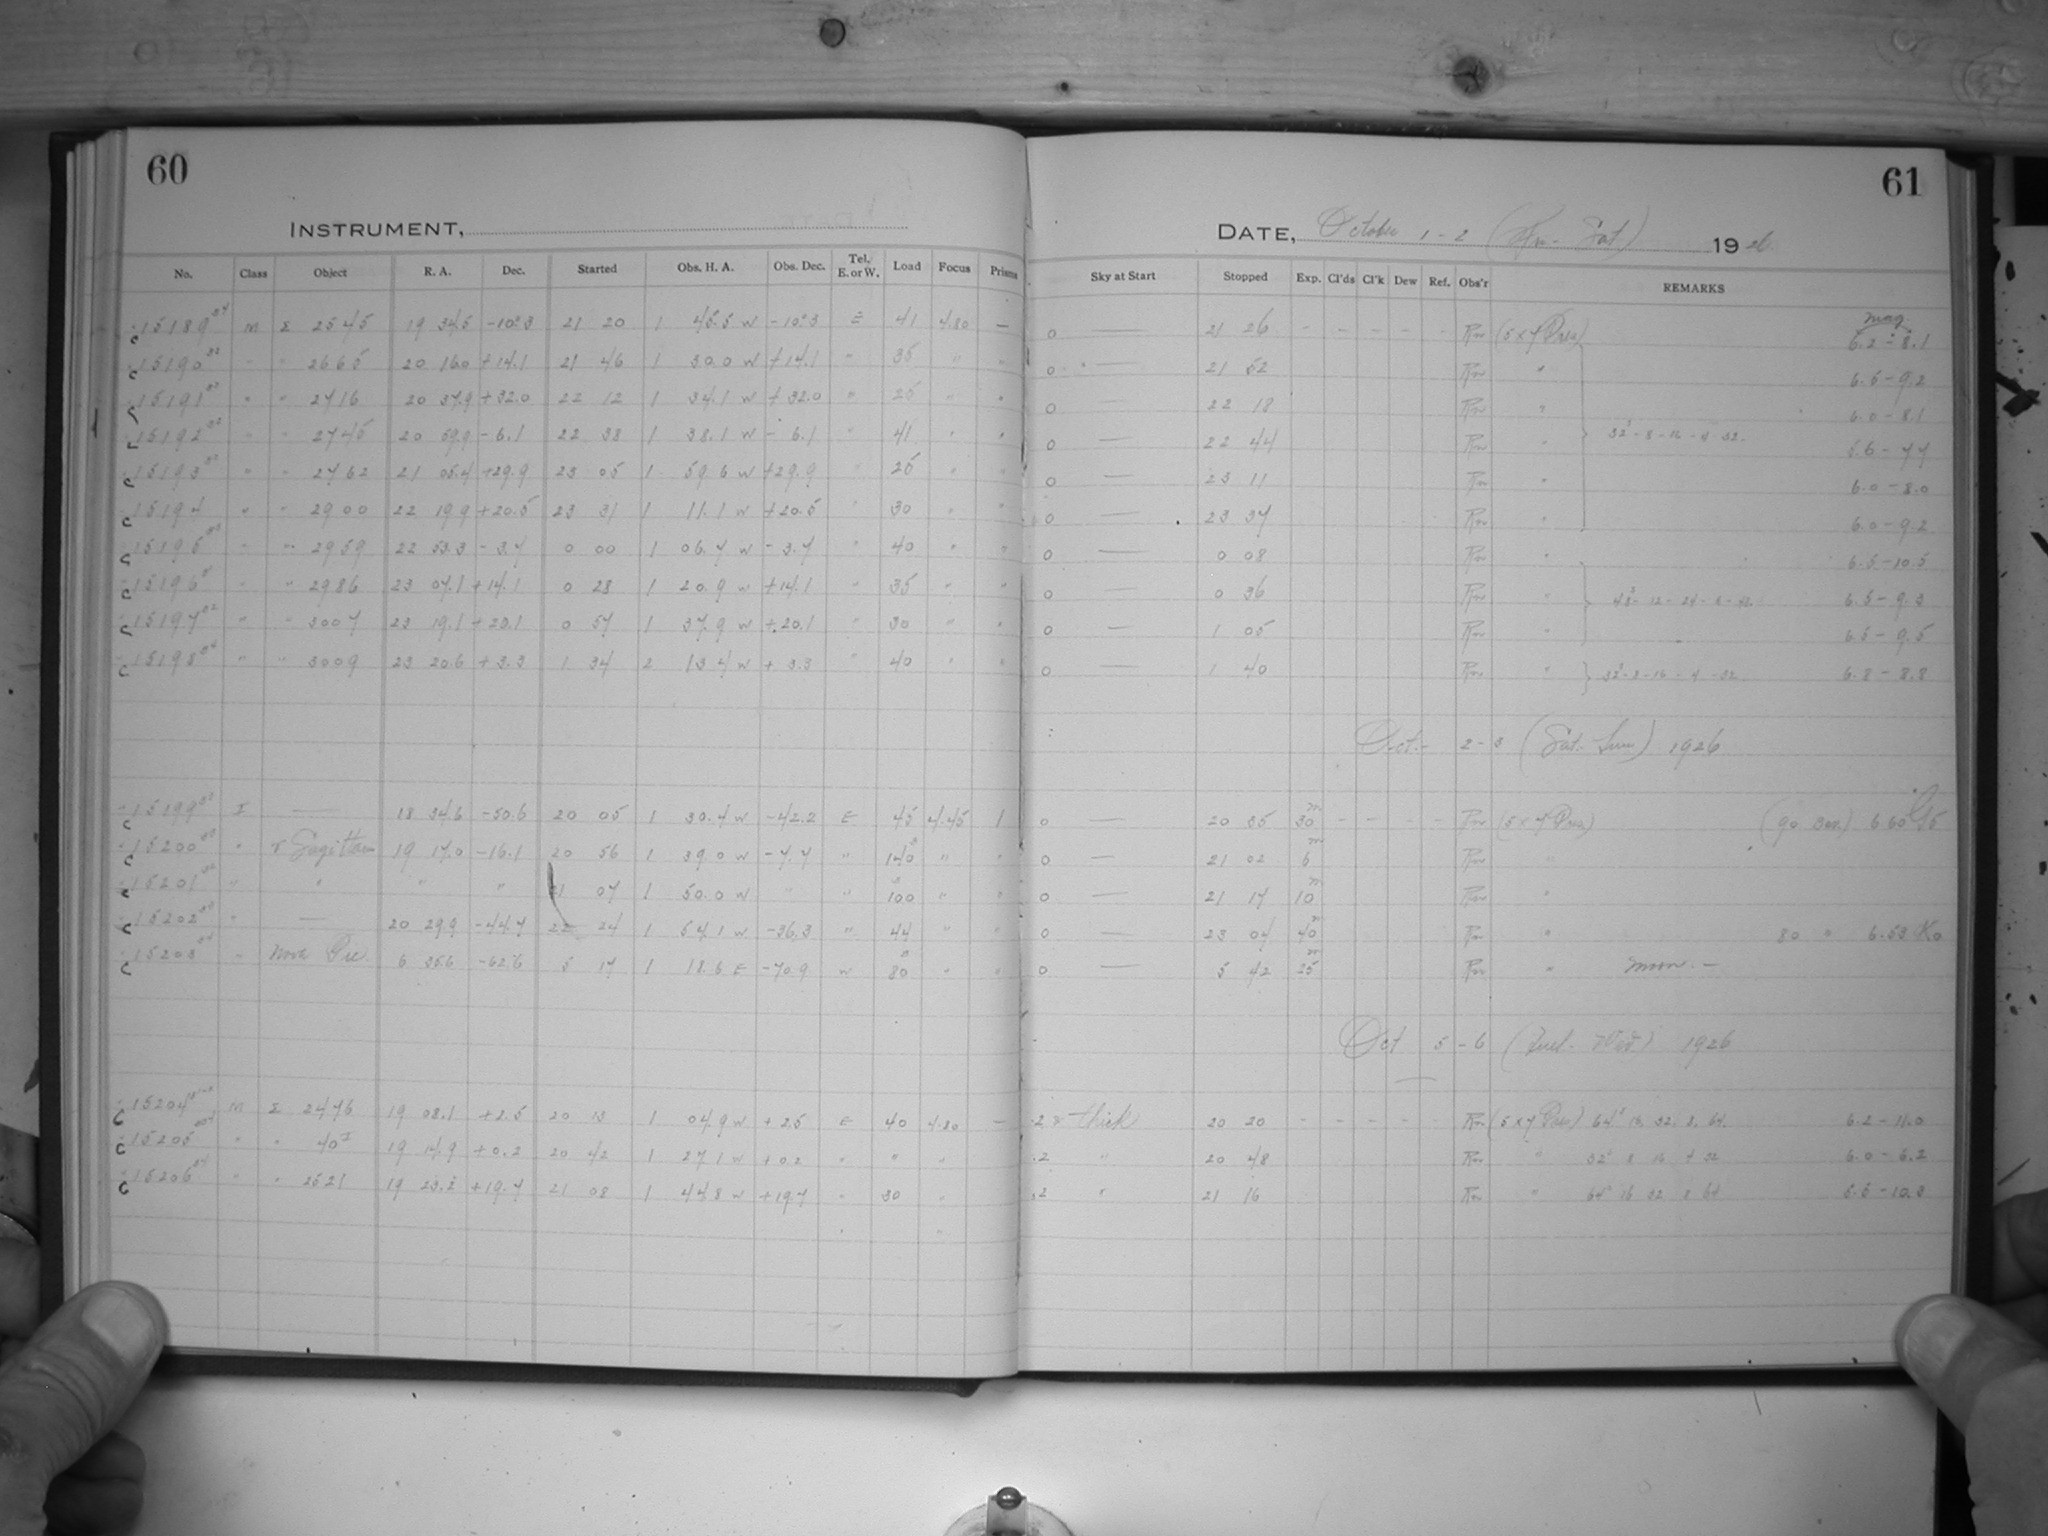 60
INSTRUMENT,
No. Class Object R. A. Dec. Started Obs. H. A. Obs. Dec. Tel. E. or W. Load Focus Prisms
15189 M Σ 2545 19 34.5 -10.3 21 20 1 45.5 W -10.3 E 41 4.80 —
15190 " " 2665 20 16.0 +14.1 21 46 1 30.0 W +14.1 " 35 " "
15191 " " 2716 20 37.9 +32.0 22 12 1 34.1 W +32.0 " 25 " "
15192 " " 2745 20 59.9 -6.1 22 38 1 38.1 W -6.1 41 " "
15193 " " 2762 21 05.4 +29.9 23 05 1 59.6 W +29.9 " 25 " "
15194 " " 2900 22 19.9 +20.5 23 31 1 11.1 W +20.5 " 30 " "
15195 " " 2959 22 53.3 -3.7 0 00 1 06.7 W -3.7 " 40 " "
15196 " " 2986 23 07.1 +14.1 0 28 1 20.9 W +14.1 " 35 " "
15197 " " 3007 23 19.1 +20.1 0 57 1 37.9 W +20.1 " 30 " "
15198 " " 3009 23 20.6 +3.3 1 34 2 13.4 W +3.3 " 40 " "
15199 I — 18 34.6 -50.6 20 05 1 30.4 W -42.2 E 45 4.45 1
15200 " Sagittar 19 17.0 -16.1 20 56 1 39.0 W -7.7 " 140 " "
15201 " " " " 21 07 1 50.0 W " " 100 " "
15202 " — 20 29.9 -44.7 22 24 1 54.1 W -36.3 " 44 " "
15203 " Nova Pic. 6 35.6 -62.6 5 17 1 18.6 E -70.9 W 80 " "
15204 M Σ 2476 19 08.1 +2.5 20 13 1 04.9 W +2.5 E 40 4.80 —
15205 " " 40 19 14.9 +0.2 20 42 1 27.1 W +0.2 " " "
15206 " " 2521 19 23.2 +19.7 21 08 1 44.8 W +19.7 " 30 "
61
DATE, October 1-2 (Fri- Sat) 1926
Sky at Start Stopped Exp. Cl'ds Cl'k Dew Ref. Obs'r REMARKS
mag.
0 — 21 26 - - - - - Rw (5x7 Pres) 6.2-8.1
0 — 21 52 Rw " 6.5-9.2
0 — 22 18 Rw " 6.0-8.1
0 — 22 44 Rw " 32-8-16-4-32 5.6-7.7
0 — 23 11 Rw " 6.0-8.0
0 — 23 37 Rw " 6.0-9.2
0 — 0 08 Rw " 6.5-10.5
0 — 0 36 Rw " 6.5-9.3
0 — 1 05 Rw " 6.5-9.5
0 — 1 40 Rw " 32-8-16-4-32 6.8-8.8
Oct. 2-3 (Sat-Sun) 1926
0 — 20 35 30m - - - - Rw (5x7 Pres) 6.60 G5
0 — 21 02 6m Rw "
0 — 21 17 10m Rw "
0 — 23 04 40m Rw " 80 " 6.53 K0
0 — 5 42 25m Rw " moon. —
Oct 5-6 (Tues- Wed) 1926
.2 thick 20 20 - - - - - Rw (5x7 Pres) 64 16 32 8 64 6.2-11.0
.2 " 20 48 Rw " 32 8 16 4 32 6.0-6.2
.2 " 21 16 Rw " 64 16 32 8 64 5.5-10.3